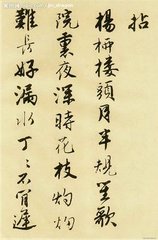 拈
楊柳樓頭月半規笙歌
院裏夜深時花枝灼灼
難長好漏水丁〻不肯遲